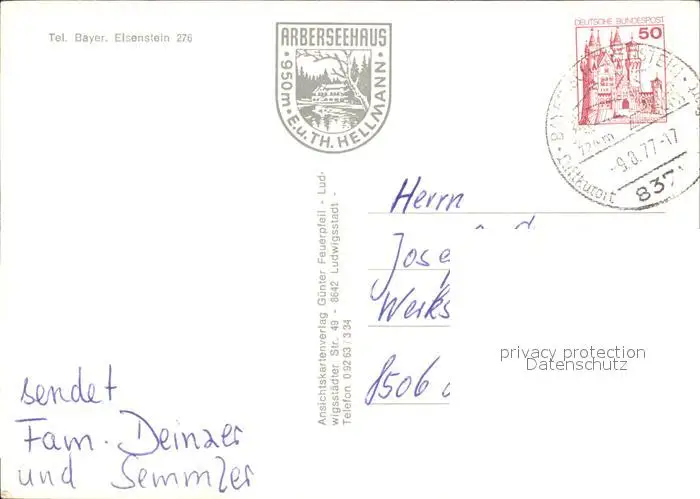 Tel. Bayer. Eisenstein 276
ARBERSEEHAUS
· 950m · E.u.TH. HELLMANN ·
DEUTSCHE BUNDESPOST
50
-9.8.77-17
724 m
Luftkurort
837
Ansichtskartenverlag Günter Feuerpfeil - Lud-
wigsstädter Str. 49 - 8642 Ludwigsstadt -
Telefon 0 92 63 / 3 34
Herrn
Jose
Werks
8506
privacy protection
Datenschutz
sendet
Fam. Deinzer
und Semmler